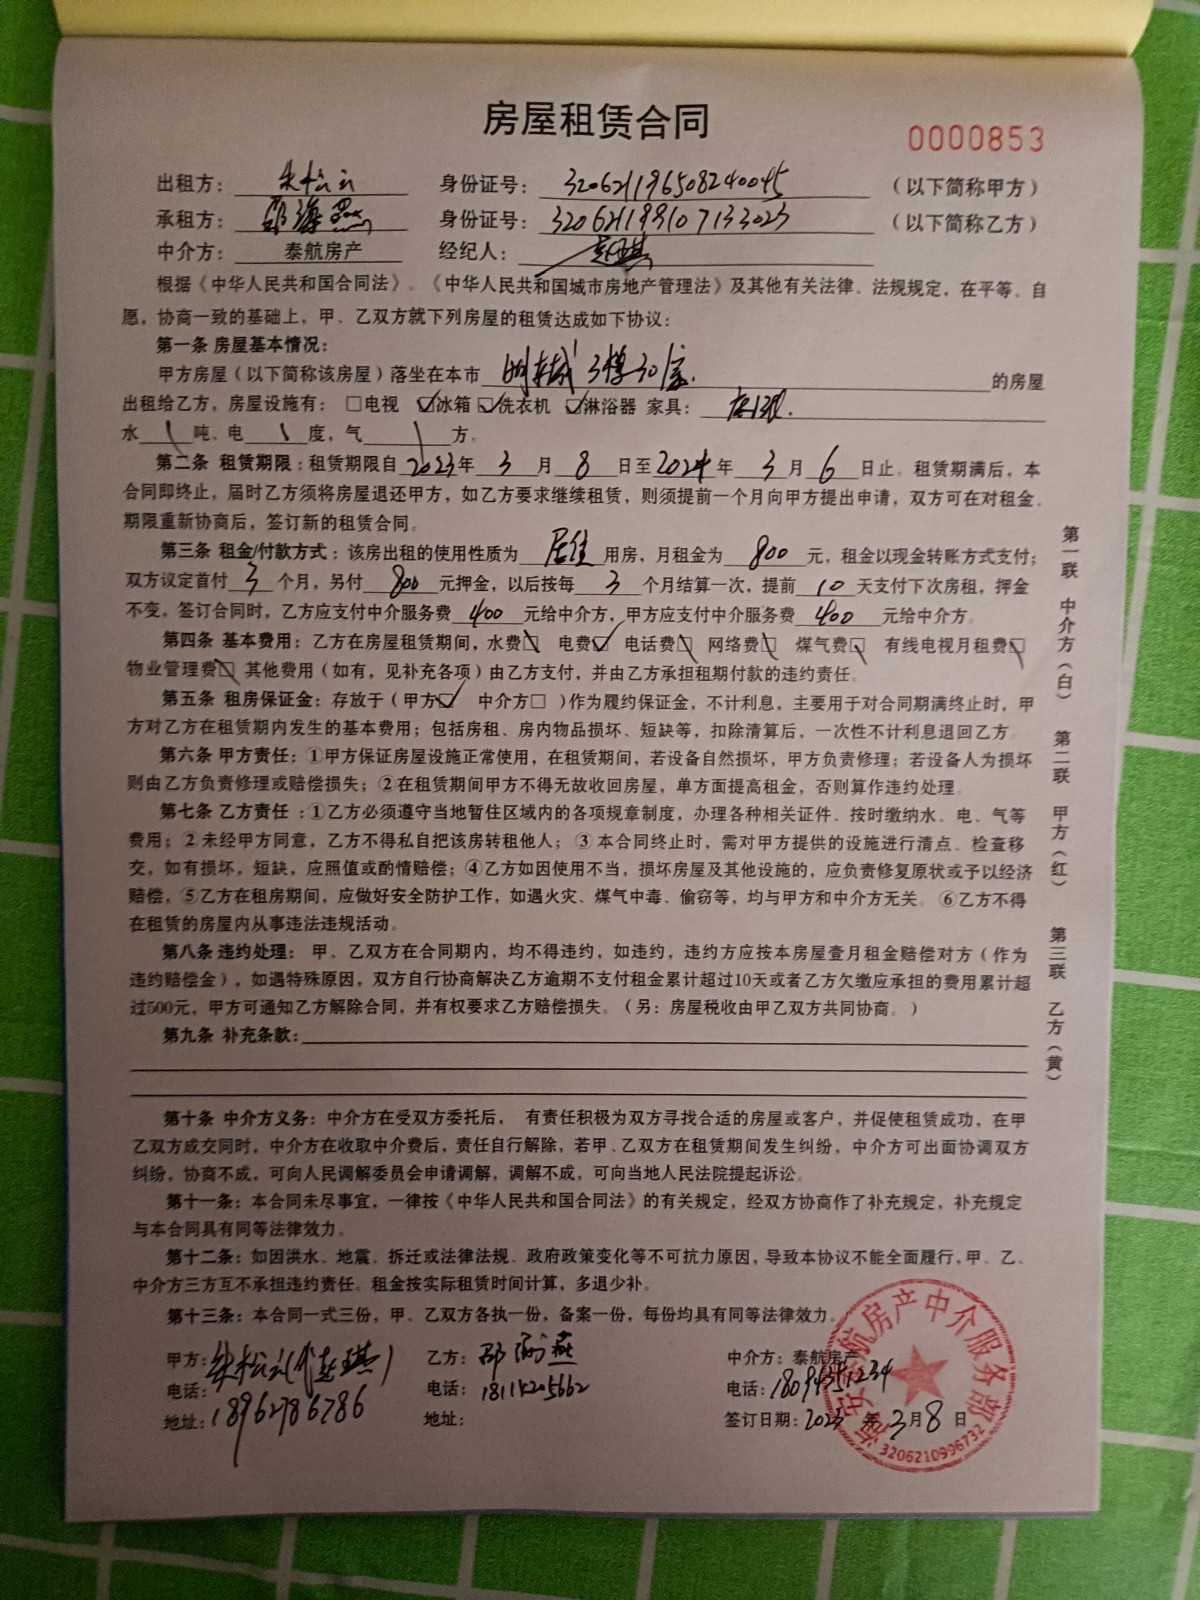 房屋租赁合同
0000853
出租方：朱松云 身份证号：320621196508240045 （以下简称甲方）
承租方： 身份证号：320621199107133023 （以下简称乙方）
中介方：泰航房产 经纪人：
根据《中华人民共和国合同法》、《中华人民共和国城市房地产管理法》及其他有关法律、法规规定，在平等、自
愿，协商一致的基础上，甲、乙双方就下列房屋的租赁达成如下协议：
第一条 房屋基本情况：
甲方房屋（以下简称该房屋）落坐在本市 3楼30室. 的房屋
出租给乙方，房屋设施有：□电视 ☑冰箱 ☑洗衣机 ☑淋浴器 家具：
水 \ 吨、电 \ 度，气 \ 方。
第二条 租赁期限：租赁期限自2023年 3 月 8 日至2024年 3 月 6 日止。租赁期满后，本
合同即终止，届时乙方须将房屋退还甲方，如乙方要求继续租赁，则须提前一个月向甲方提出申请，双方可在对租金、
期限重新协商后，签订新的租赁合同。
第三条 租金/付款方式：该房出租的使用性质为 居住 用房，月租金为 800 元，租金以现金转账方式支付；
双方议定首付 3 个月，另付 800 元押金，以后按每 3 个月结算一次，提前 10 天支付下次房租，押金
不变。签订合同时，乙方应支付中介服务费 400 元给中介方，甲方应支付中介服务费 400 元给中介方。
第四条 基本费用：乙方在房屋租赁期间，水费□ 电费☑ 电话费□ 网络费□ 煤气费□ 有线电视月租费□
物业管理费□ 其他费用（如有，见补充各项）由乙方支付，并由乙方承担租期付款的违约责任。
第五条 租房保证金：存放于（甲方☑ 中介方□ ）作为履约保证金，不计利息，主要用于对合同期满终止时，甲
方对乙方在租赁期内发生的基本费用；包括房租、房内物品损坏、短缺等，扣除清算后，一次性不计利息退回乙方。
第六条 甲方责任：①甲方保证房屋设施正常使用，在租赁期间，若设备自然损坏，甲方负责修理；若设备人为损坏
则由乙方负责修理或赔偿损失；②在租赁期间甲方不得无故收回房屋，单方面提高租金，否则算作违约处理。
第七条 乙方责任 ：①乙方必须遵守当地暂住区域内的各项规章制度，办理各种相关证件、按时缴纳水、电、气等
费用；②未经甲方同意，乙方不得私自把该房转租他人；③本合同终止时，需对甲方提供的设施进行清点、检查移
交，如有损坏，短缺，应照值或酌情赔偿；④乙方如因使用不当，损坏房屋及其他设施的，应负责修复原状或予以经济
赔偿，⑤乙方在租房期间，应做好安全防护工作，如遇火灾、煤气中毒、偷窃等，均与甲方和中介方无关。⑥乙方不得
在租赁的房屋内从事违法违规活动。
第八条 违约处理： 甲、乙双方在合同期内，均不得违约，如违约，违约方应按本房屋壹月租金赔偿对方（作为
违约赔偿金），如遇特殊原因，双方自行协商解决乙方逾期不支付租金累计超过10天或者乙方欠缴应承担的费用累计超
过500元，甲方可通知乙方解除合同，并有权要求乙方赔偿损失。（另：房屋税收由甲乙双方共同协商。）
第九条 补充条款：
第十条 中介方义务：中介方在受双方委托后， 有责任积极为双方寻找合适的房屋或客户，并促使租赁成功，在甲
乙双方成交同时，中介方在收取中介费后，责任自行解除，若甲、乙双方在租赁期间发生纠纷，中介方可出面协调双方
纠纷，协商不成，可向人民调解委员会申请调解，调解不成，可向当地人民法院提起诉讼。
第十一条：本合同未尽事宜，一律按《中华人民共和国合同法》的有关规定，经双方协商作了补充规定，补充规定
与本合同具有同等法律效力。
第十二条：如因洪水、地震、拆迁或法律法规、政府政策变化等不可抗力原因，导致本协议不能全面履行，甲、乙、
中介方三方互不承担违约责任。租金按实际租赁时间计算，多退少补。
第十三条：本合同一式三份，甲、乙双方各执一份，备案一份，每份均具有同等法律效力。
甲方：朱松云 乙方： 中介方：泰航房产
电话：18962786786 电话：18115205662 电话：18094351234
地址： 地址： 签订日期：2023 年 3月 8 日
第一联 中介方（白） 第二联 甲方（红） 第三联 乙方（黄）
海安泰航房产中介服务部
3206210996732